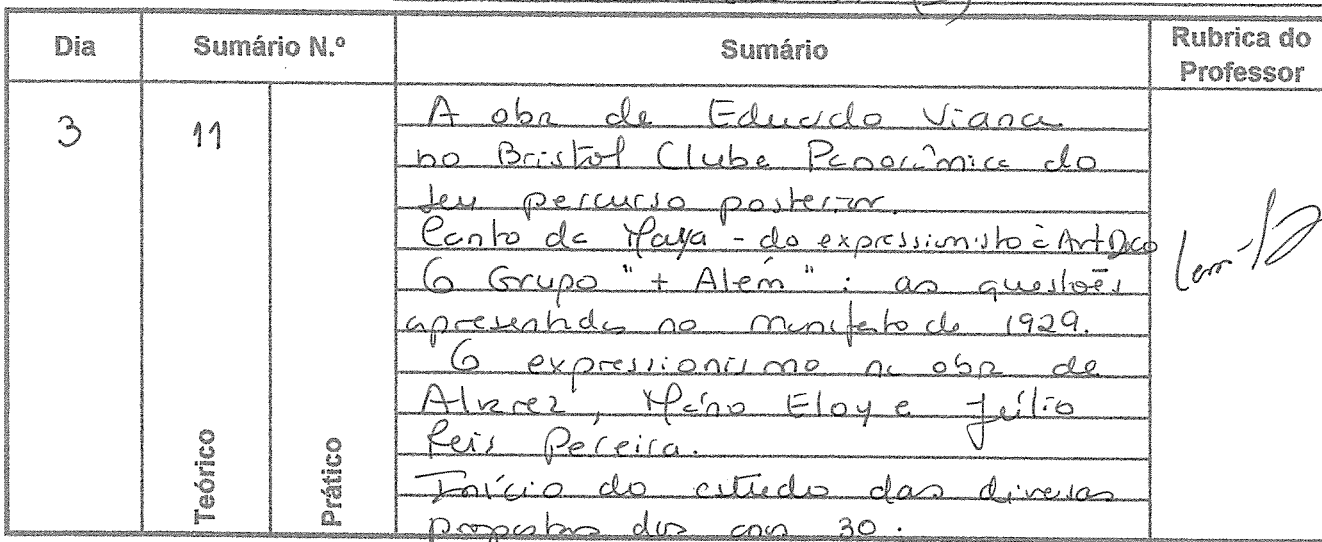 Dia Sumário N.º Sumário Rubrica do Professor
3 11
A obra de Eduardo Viana
no Bristol Clube Panorâmica do
seu percurso posterior.
Canto da Maya - do expressionisto à Art Deco
O Grupo "+ Além" : as questões
apresentadas no manifesto de 1929.
O expressionismo na obra de
Alvarez, Mário Eloy e Júlio
Reis Pereira.
Início do estudo das diversas
propostas dos anos 30.
Teórico Prático